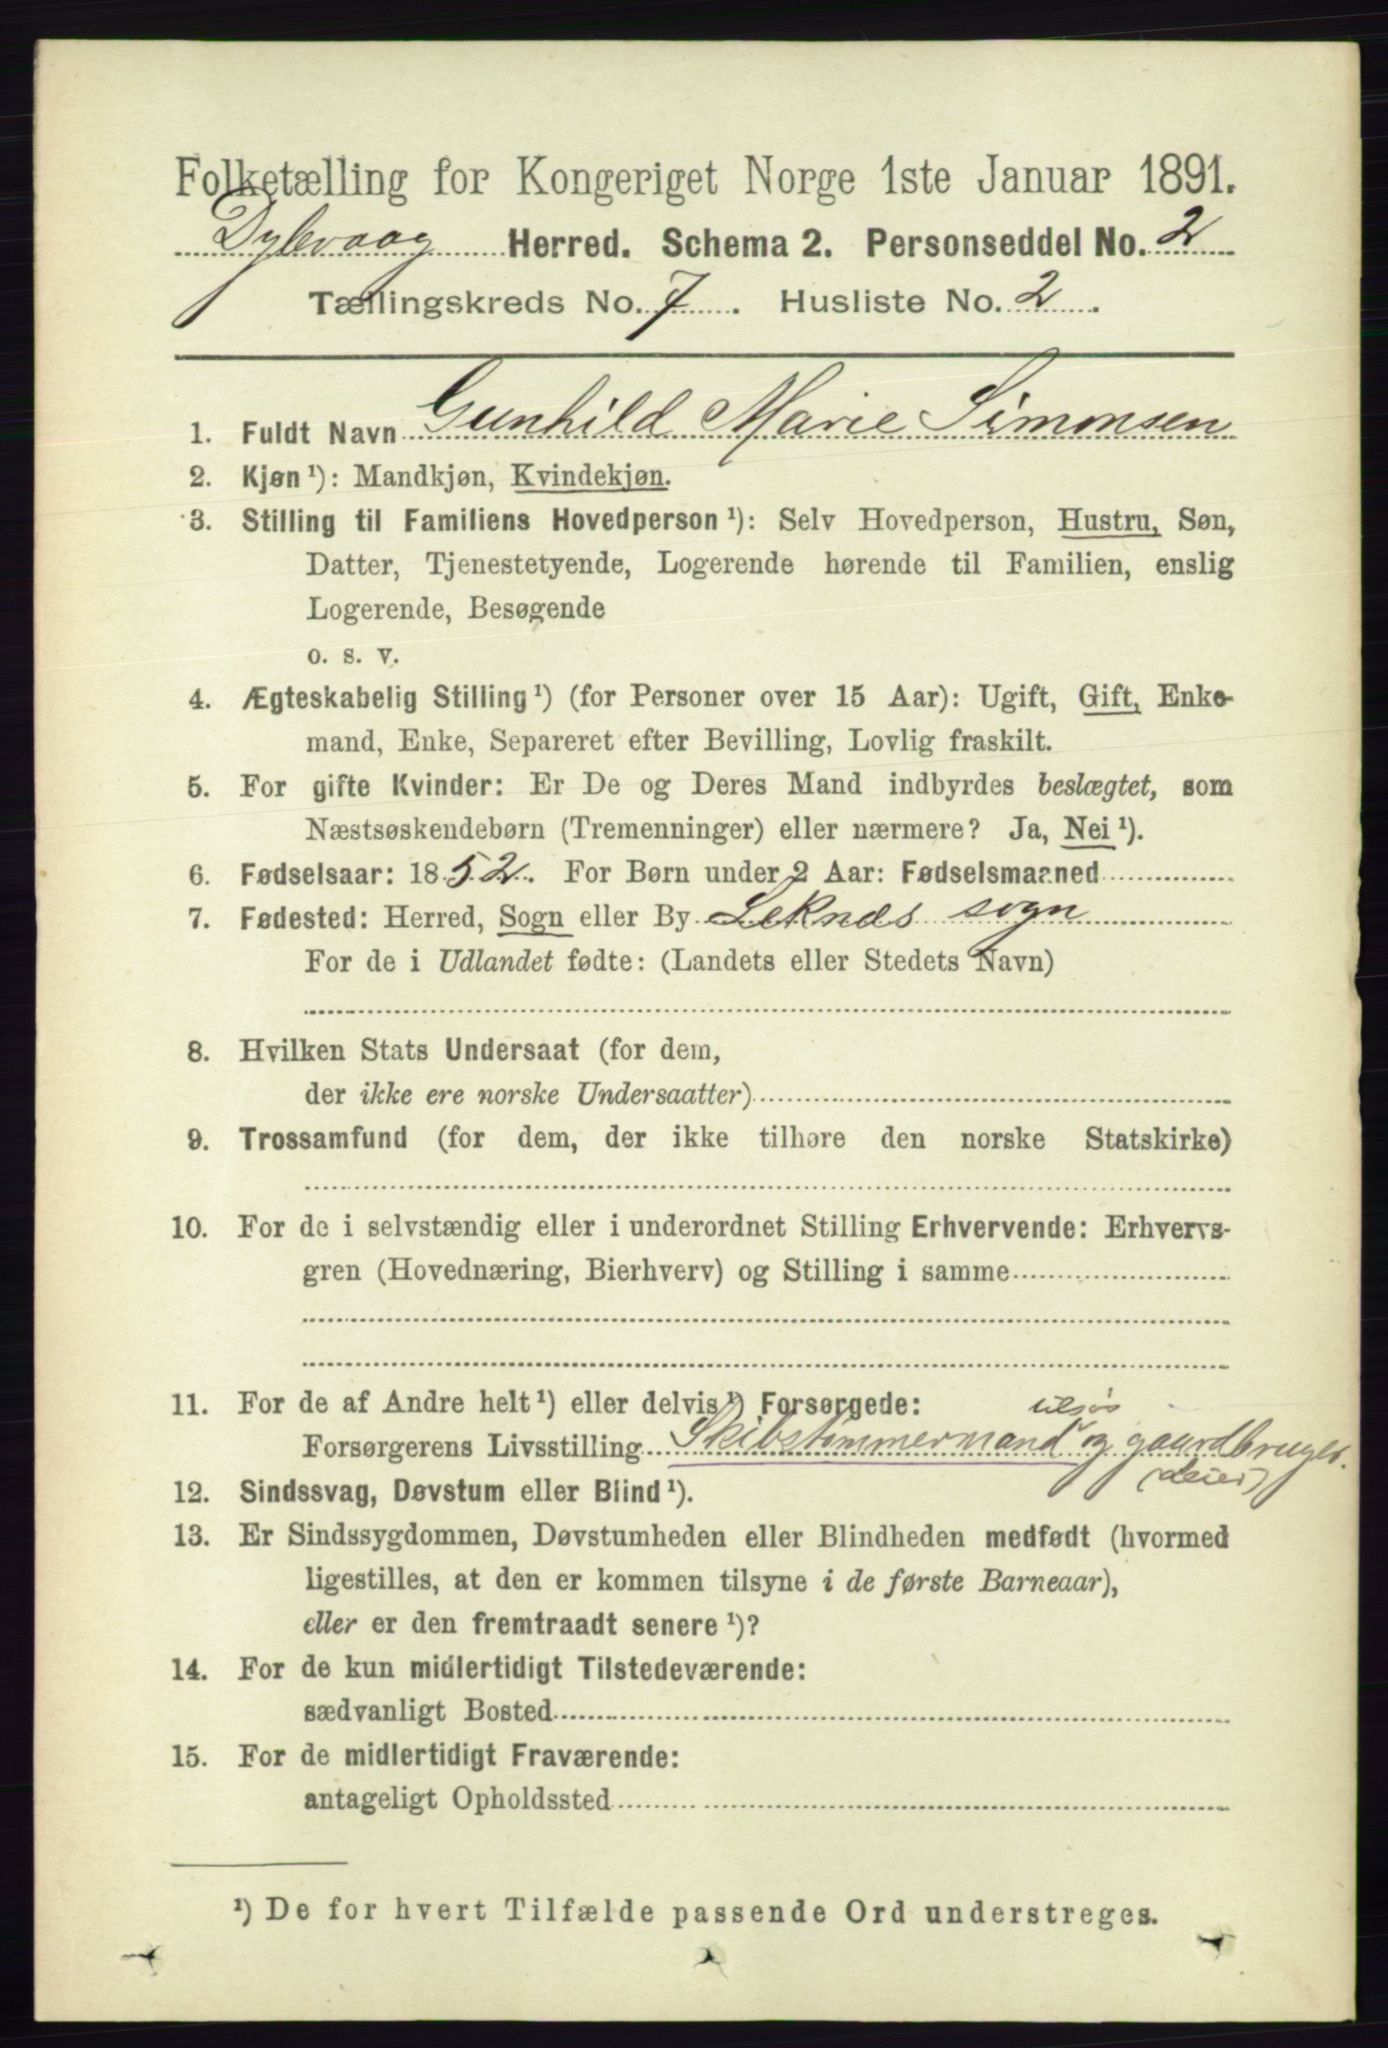 Folketælling for Kongeriget Norge 1ste Januar 1891.
Dybvaag Herred. Schema 2. Personseddel No. 2
Tællingskreds No. 7. Husliste No. 2.
1. Fuldt Navn Gunhild Marie Simonsen
2. Kjøn ¹): Mandkjøn, Kvindekjøn.
3. Stilling til Familiens Hovedperson ¹): Selv Hovedperson, Hustru, Søn,
Datter, Tjenestetyende, Logerende hørende til Familien, enslig
Logerende, Besøgende
o. s. v.
4. Ægteskabelig Stilling ¹) (for Personer over 15 Aar): Ugift, Gift, Enke-
mand, Enke, Separeret efter Bevilling, Lovlig fraskilt.
5. For gifte Kvinder: Er De og Deres Mand indbyrdes beslægtet, som
Næstsøskendebørn (Tremenninger) eller nærmere? Ja, Nei ¹).
6. Fødselsaar: 1852. For Børn under 2 Aar: Fødselsmaaned
7. Fødested: Herred, Sogn eller By Leknes sogn
For de i Udlandet fødte: (Landets eller Stedets Navn)
8. Hvilken Stats Undersaat (for dem,
der ikke ere norske Undersaatter)
9. Trossamfund (for dem, der ikke tilhøre den norske Statskirke)
10. For de i selvstændig eller i underordnet Stilling Erhvervende: Erhvervs-
gren (Hovednæring, Bierhverv) og Stilling i samme
11. For de af Andre helt ¹) eller delvis ¹) Forsørgede:
tilsjøs
Forsørgerens Livsstilling Skibstømmermand og gaardbruger.
(leier)
12. Sindssvag, Døvstum eller Blind ¹).
13. Er Sindssygdommen, Døvstumheden eller Blindheden medfødt (hvormed
ligestilles, at den er kommen tilsyne i de første Barneaar),
eller er den fremtraadt senere ¹)?
14. For de kun midlertidigt Tilstedeværende:
sædvanligt Bosted
15. For de midlertidigt Fraværende:
antageligt Opholdssted
¹) De for hvert Tilfælde passende Ord understreges.